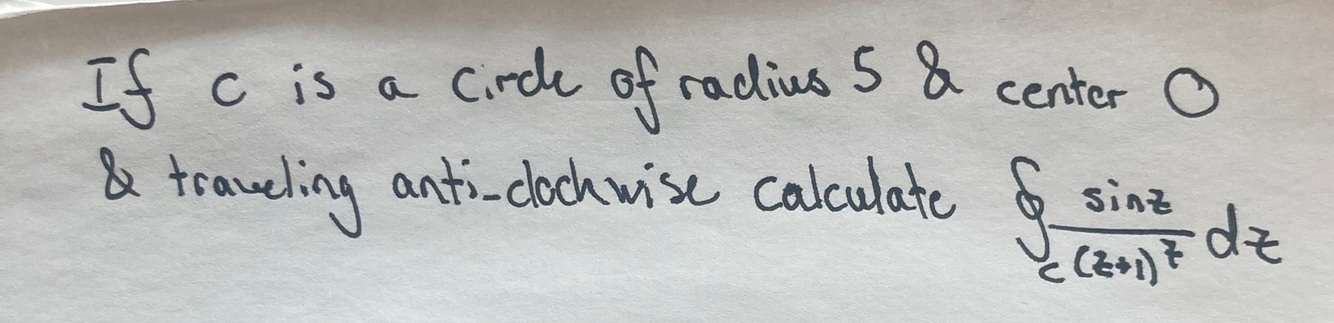 If c is a circle of radius 5 & center O
& traveling anti-clockwise calculate ∮_c sinz/(z+1)^z dz